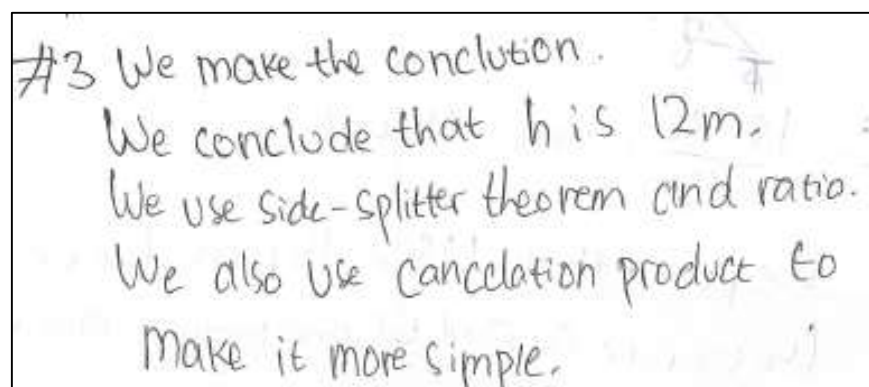 #3 We make the conclution.
We conclude that h is 12m.
We use side-splitter theorem and ratio.
We also use canccelation product to
make it more simple.